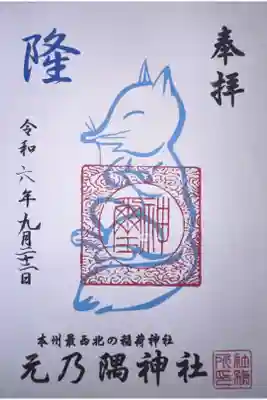 奉拝
隆
令和六年九月二十二日
本州最西北の稲荷神社
元乃隅神社